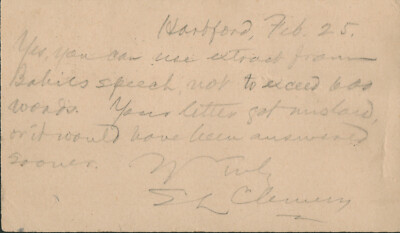 Hartford, Feb. 25.
Yes, you can use extract from
Babies speech, not to exceed 600
words. Your letter got mislaid,
or it would have been answered
sooner.
Truly
S L Clemens